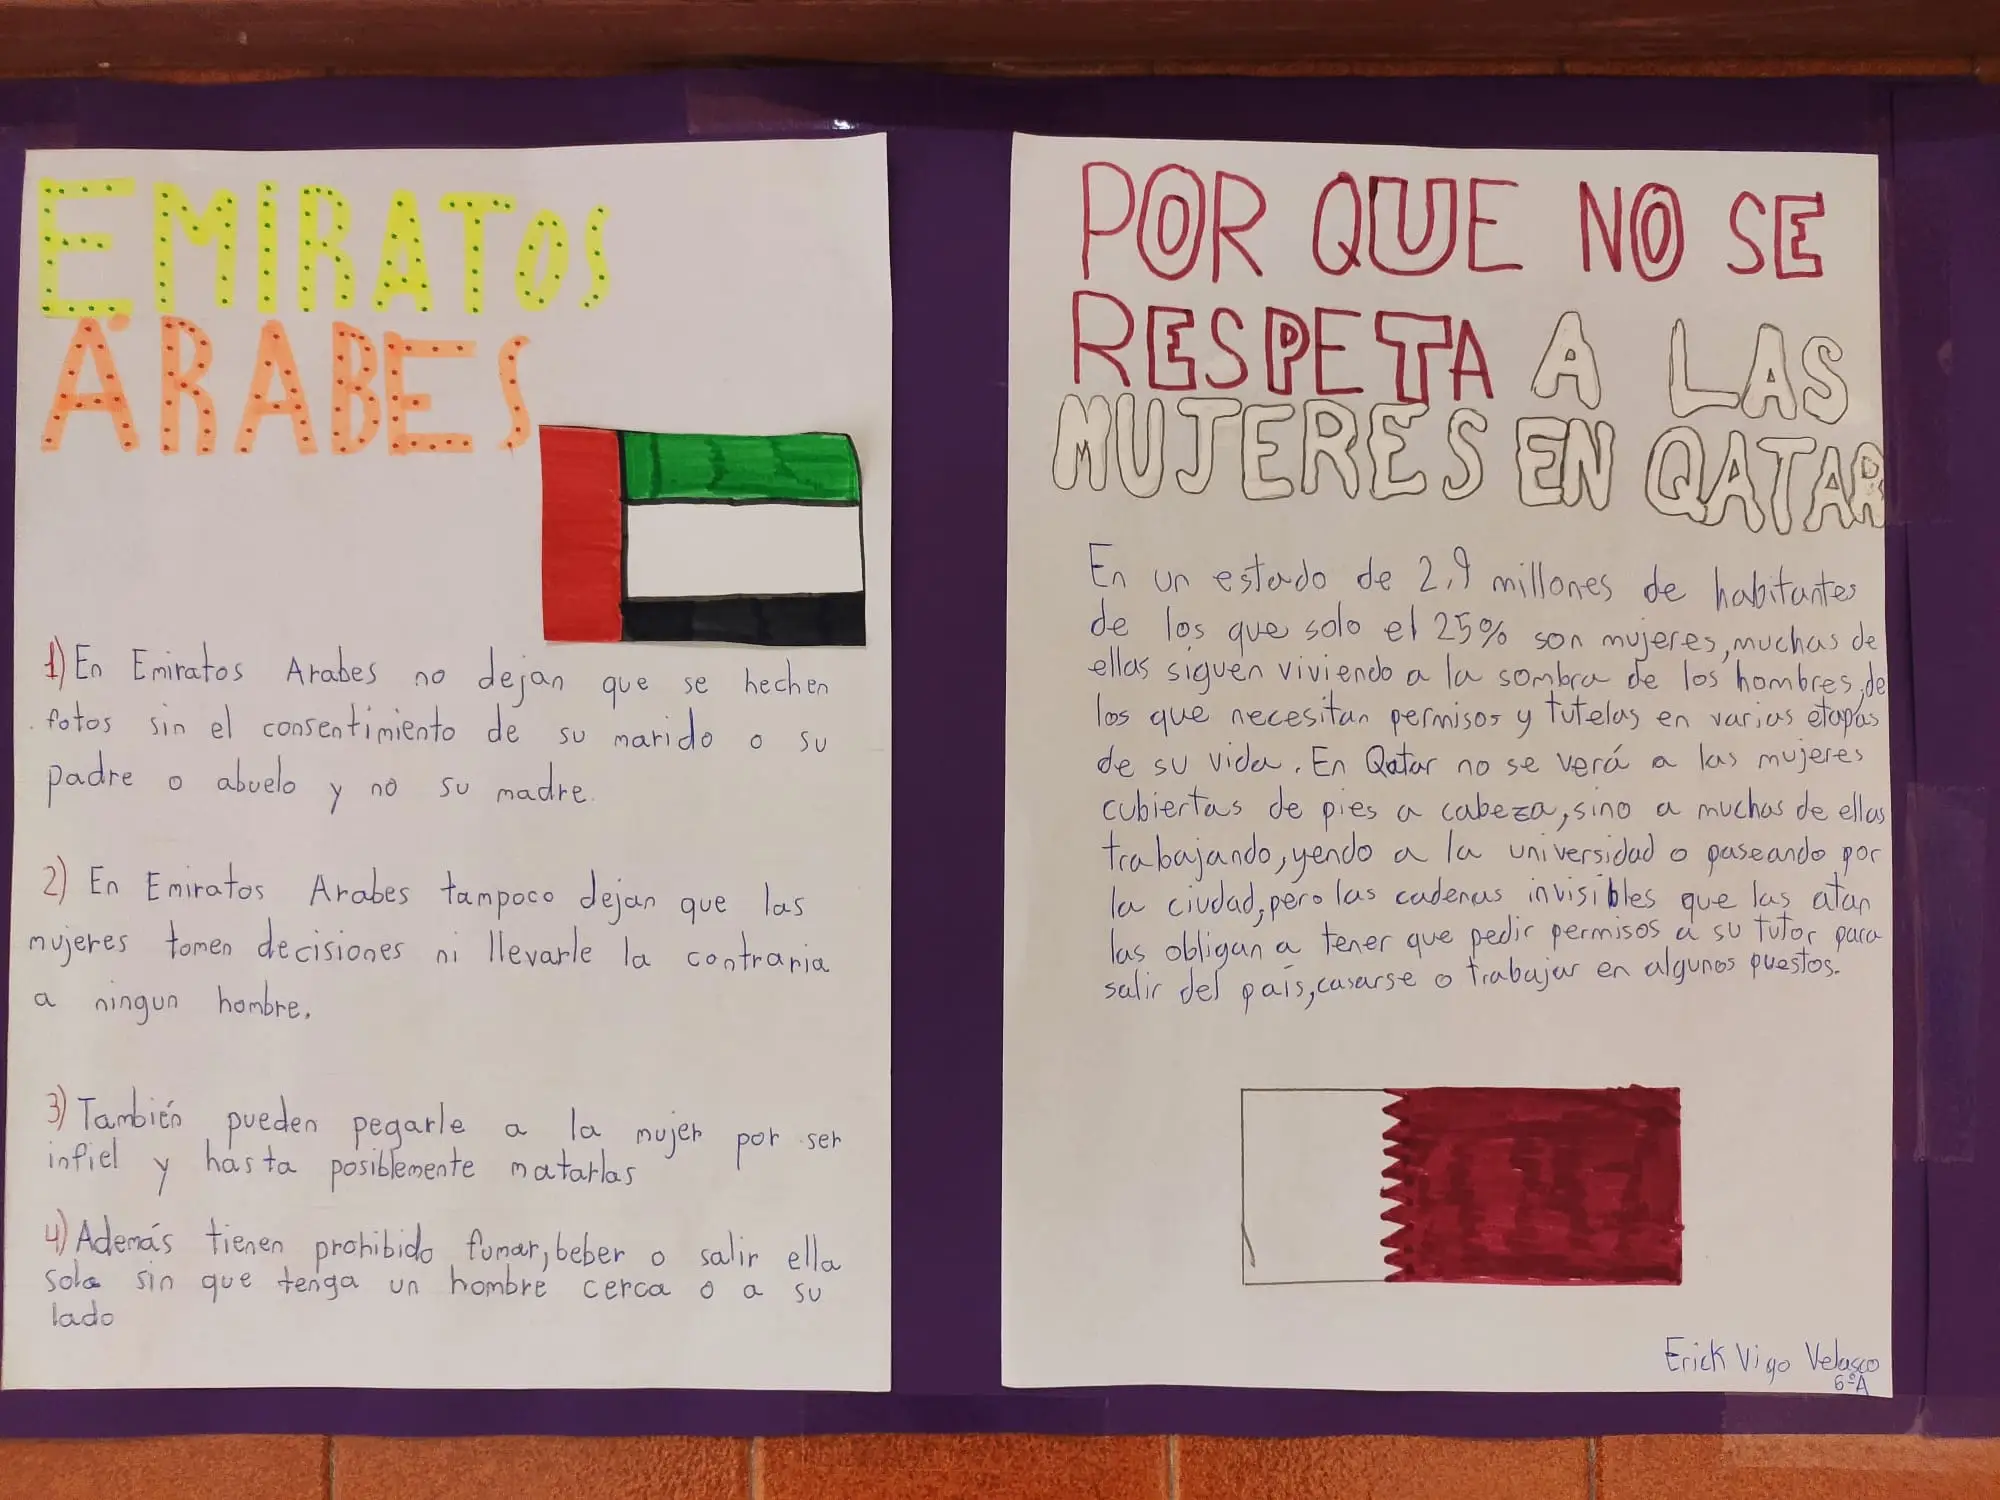 EMIRATOS
ÁRABES
1) En Emiratos Arabes no dejan que se hechen
fotos sin el consentimiento de su marido o su
padre o abuelo y no su madre.
2) En Emiratos Arabes tampoco dejan que las
mujeres tomen decisiones ni llevarle la contraria
a ningun hombre.
3) También pueden pegarle a la mujer por ser
infiel y hasta posiblemente matarlas
4) Además tienen prohibido fumar, beber o salir ella
sola sin que tenga un hombre cerca o a su
lado
POR QUE NO SE
RESPETA A LAS
MUJERES EN QATAR
En un estado de 2,9 millones de habitantes
de los que solo el 25% son mujeres, muchas de
ellas siguen viviendo a la sombra de los hombres, de
los que necesitan permisos y tutelas en varias etapas
de su vida. En Qatar no se verá a las mujeres
cubiertas de pies a cabeza, sino a muchas de ellas
trabajando, yendo a la universidad o paseando por
la ciudad, pero las cadenas invisibles que las atan
las obligan a tener que pedir permisos a su tutor para
salir del país, casarse o trabajar en algunos puestos.
Erick Vigo Velasco
6ºA